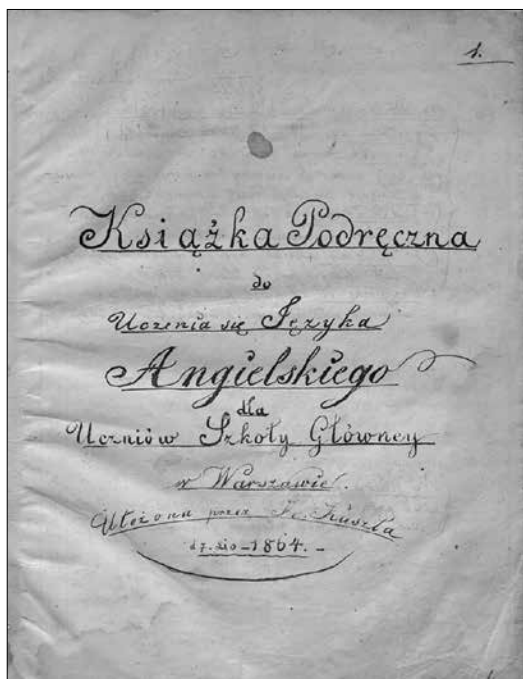 1.
Książka Podręczna
do
Uczenia się Języka
Angielskiego
dla
Uczniów Szkoły Głównej
w Warszawie.
Ułożona przez
1864. -